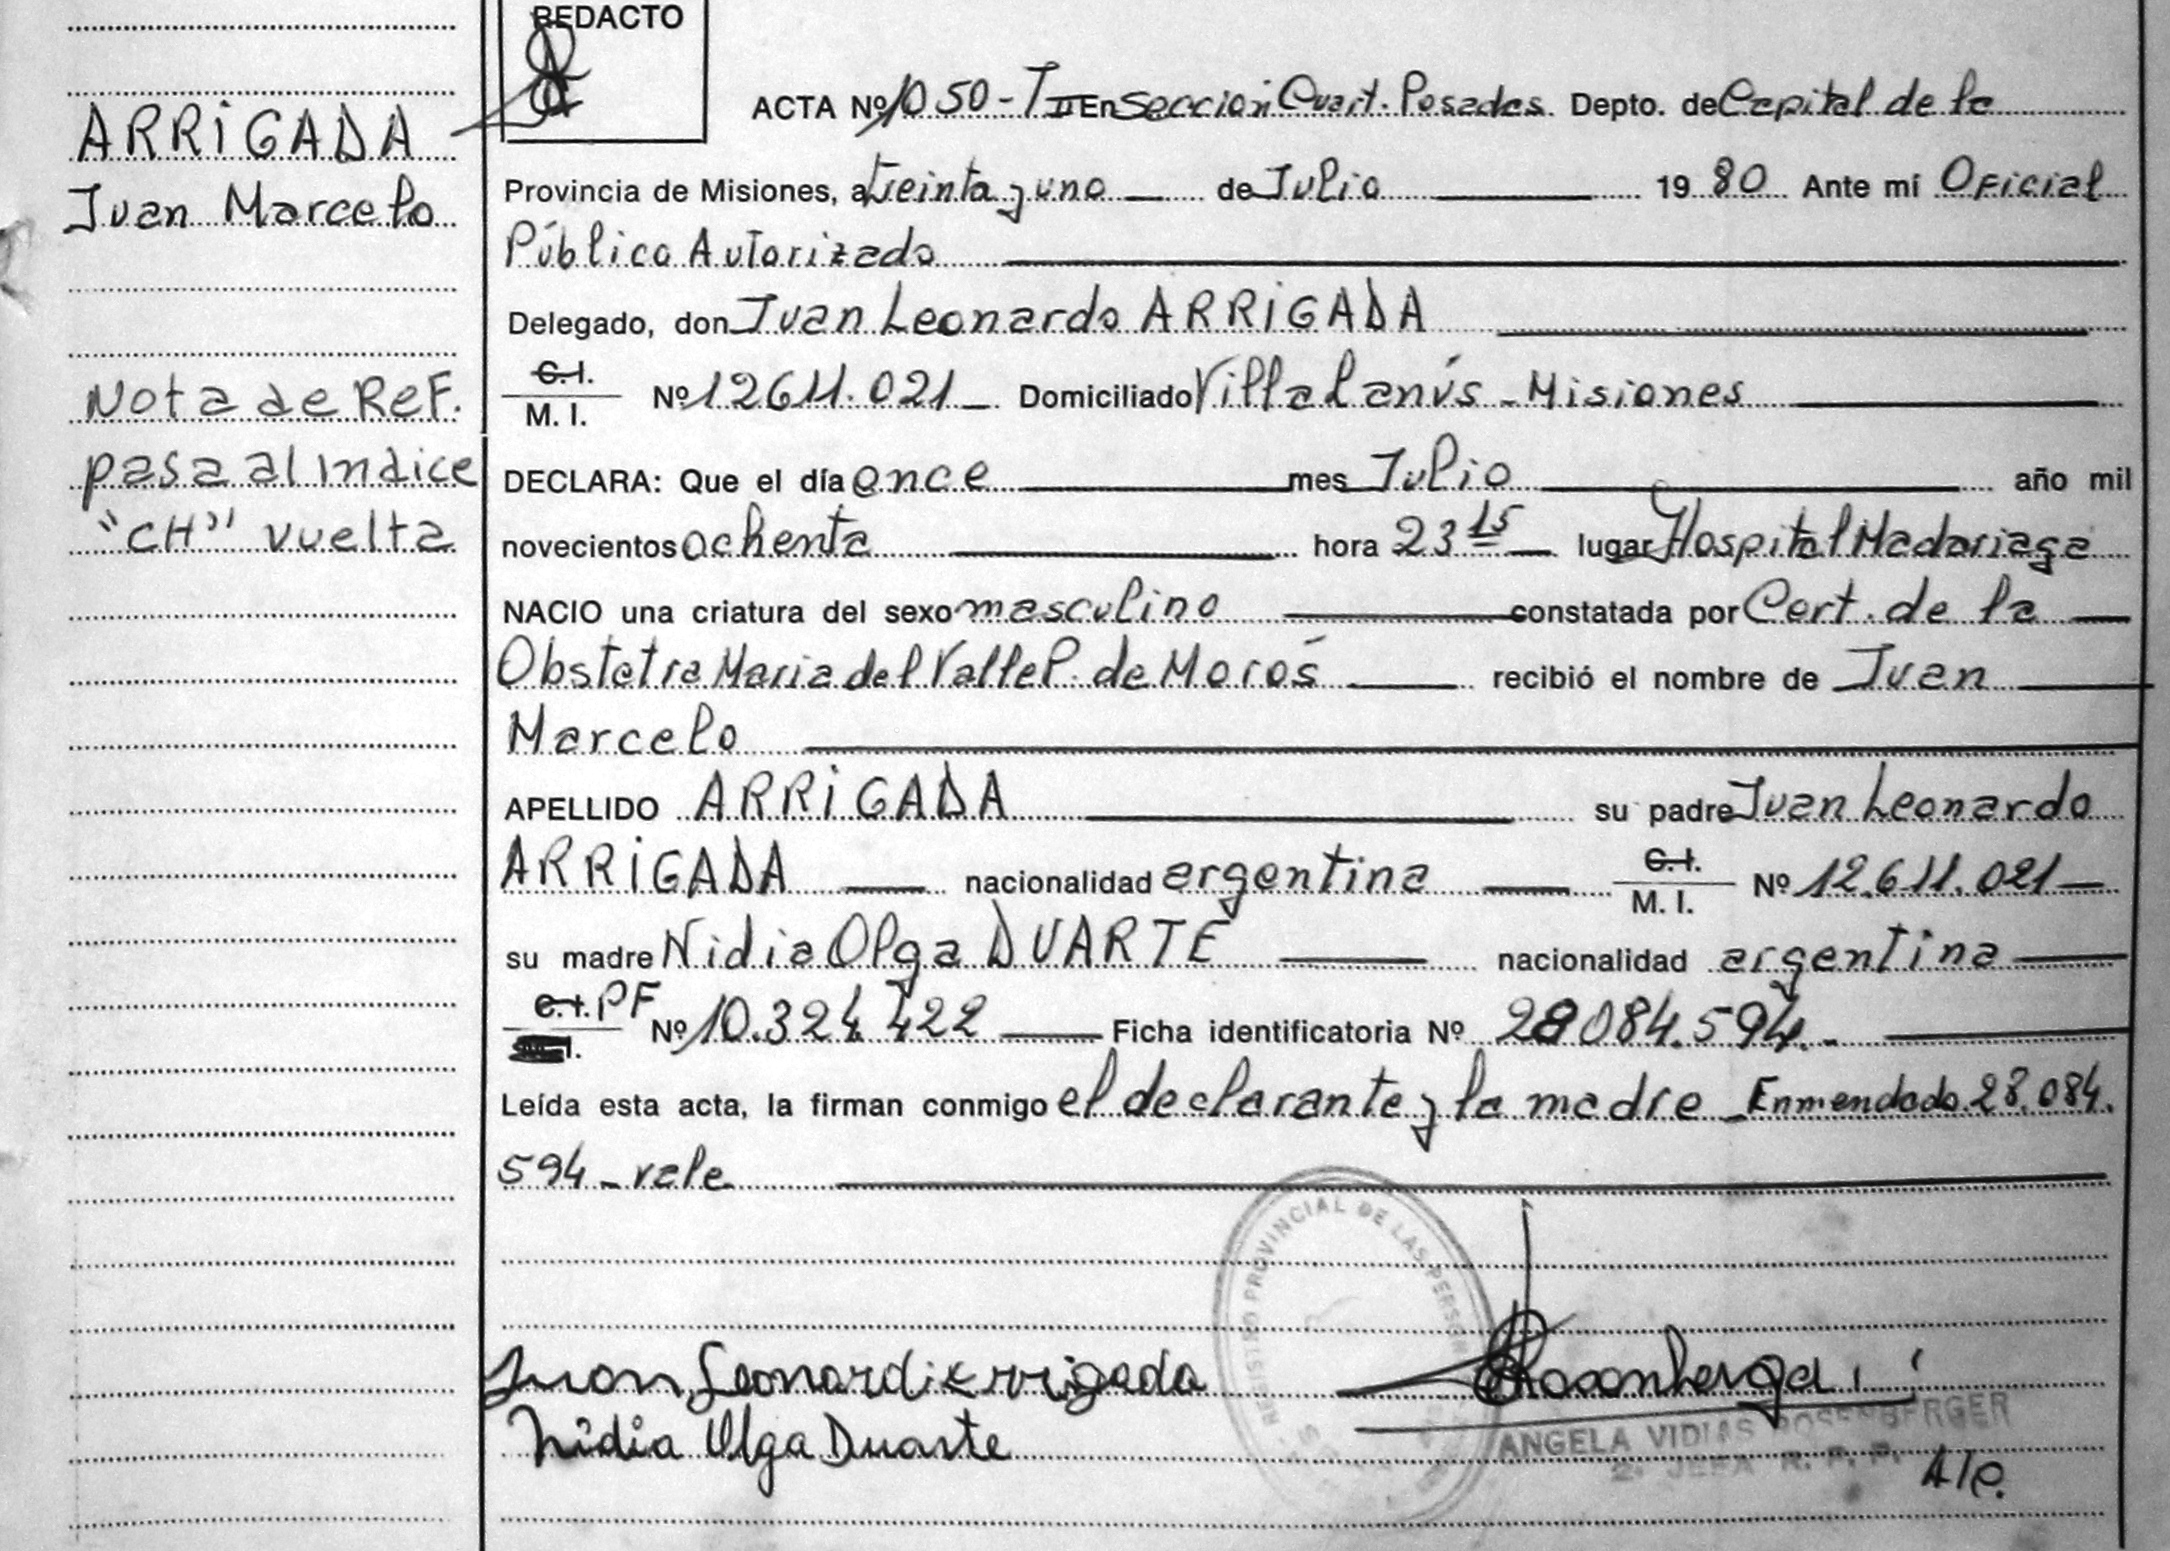 REDACTO
ARRIGADA
Juan Marcelo
Nota de Ref.
pasa al Indice
"CH" vuelta
ACTA Nº 1050 - T II En Seccion Cuart. Posadas Depto. de Capital de la
Provincia de Misiones, a treinta y uno de Julio 1980 Ante mí Oficial
Público Autorizado
Delegado, don Juan Leonardo ARRIGADA
C. I.
M. I. Nº 12611.021 Domiciliado Villa Lanús - Misiones
DECLARA: Que el día once mes Julio año mil
novecientos ochenta hora 23 15 lugar Hospital Madariaga
NACIO una criatura del sexo masculino constatada por Cert. de la
Obstetra Maria del Valle P. de Morós recibió el nombre de Juan
Marcelo
APELLIDO ARRIGADA su padre Juan Leonardo
ARRIGADA nacionalidad argentina C. I.
M. I. Nº 12.611.021
su madre Nidia Olga DUARTE nacionalidad argentina
C. I. PF Nº 10.324.422 Ficha identificatoria Nº 28084.594.-
Leída esta acta, la firman conmigo el declarante y la madre - Enmendado 28.084.
594 - vale
REGISTRO PROVINCIAL DE LAS PERSONAS
Juan Leonardo Arrigada
Nidia Olga Duarte
ANGELA VIDIAS ROSENBERGER
2ª JEFA R. P. P.